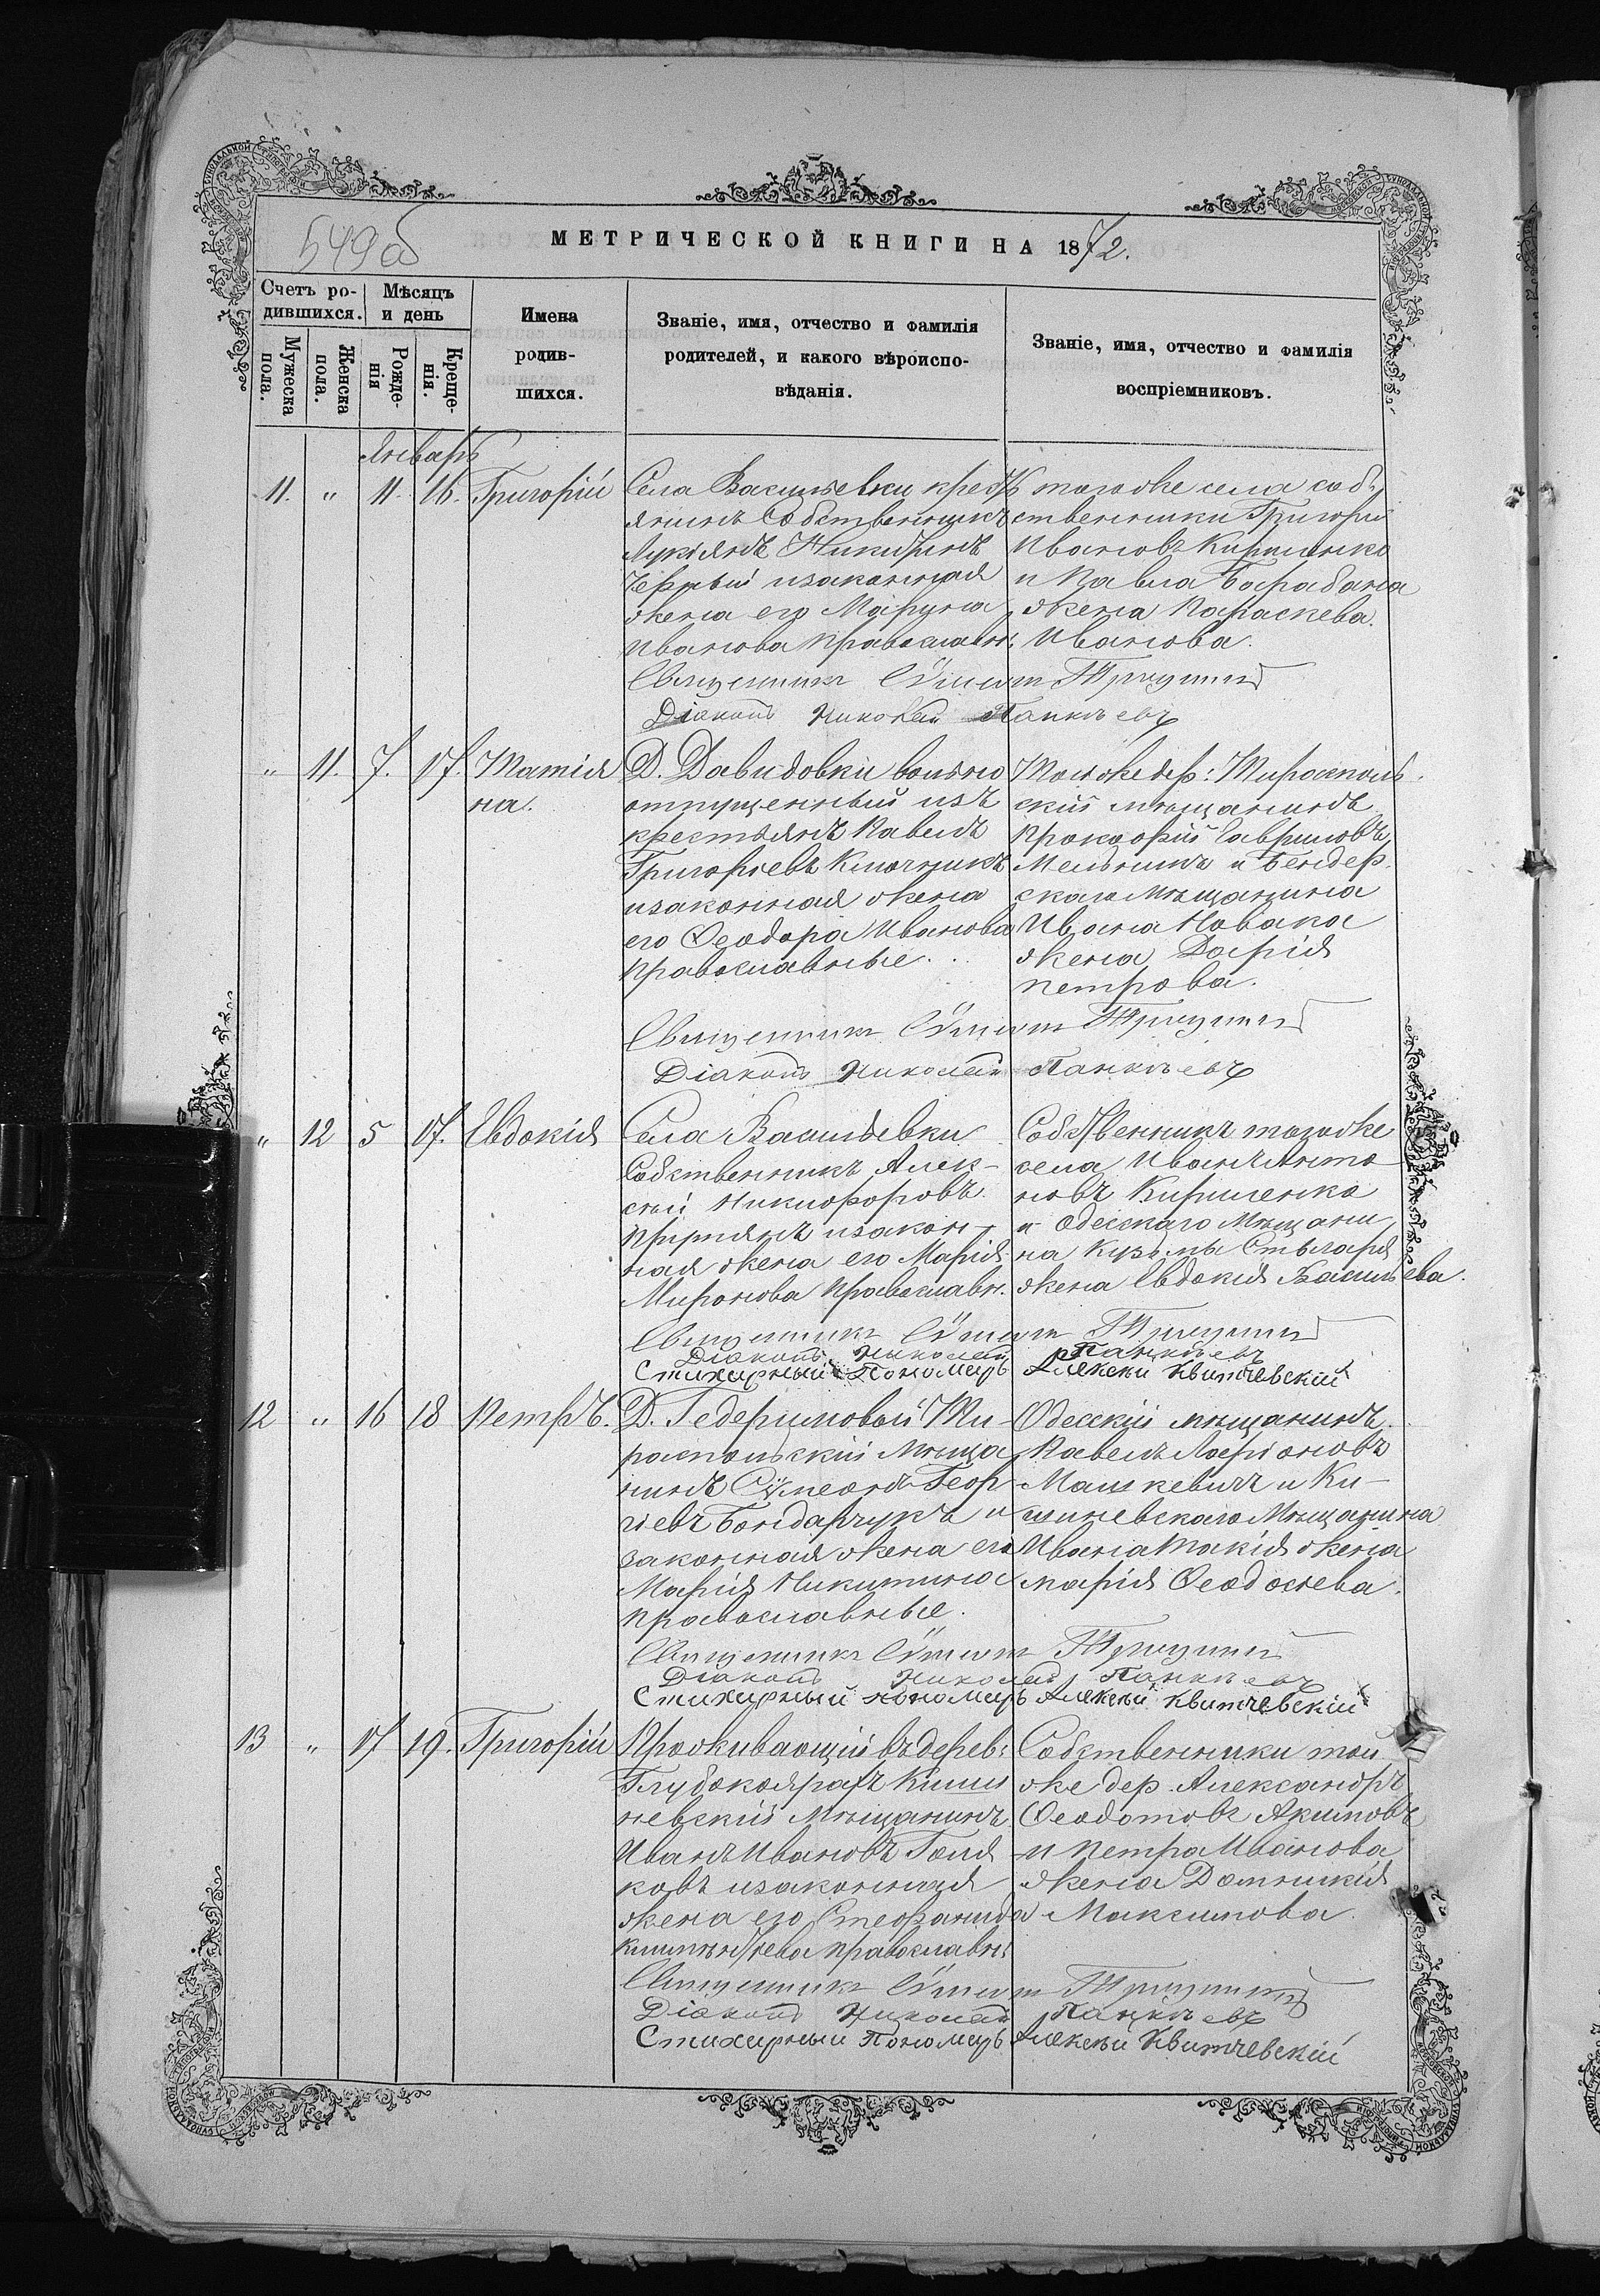 549об
МЕТРИЧЕСКОЙ КНИГИ НА 1872.
Счетъ ро-
дившихся.
Мѣсяцъ
и день
Мужеска
пола.
Женска
пола.
Рожде-
нія
Креще-
нія.
Имена
родив-
шихся.
Званіе, имя, отчество и фамилія
родителей, и какого вѣроиспо-
вѣданія.
Званіе, имя, отчество и фамилія
воспріемниковъ.
Январь
11. " 11. 16. Григорій
Села Васильевки крест
янинъ Собственникъ
Лукіянъ Никитинъ
Черный изаконная
жена его Марина
Иванова православн:
тогоже села соб-
ственники Григорій
Ивановъ Кириленко
и Павла Барабана
жена Параскева
Иванова.
Священникъ
Діаконъ Николай Панкѣевъ
" 11. 7. 17. Татія
на.
Д. Давидовки вольно
отпущенный изъ
крестьянъ Павелъ
Григорьевъ Ключникъ
изаконная жена
его Ѳеодора Иванова
православные.
Тойже дер: Тирасполь-
скій мѣщанинъ
Прокофій Гавриловъ
Мельникъ и Бендер
скаго мѣщанина
Ивана Новака
жена Дарія
петрова.
Священникъ
Діаконъ Николай Панкѣевъ
" 12 5 17. Евдокія
Села Васильевки
Собственникъ Алек-
сѣй Никифоровъ
изакон-
ная жена его Марія
Миронова православн.
Собственникъ тогоже
села Иванъ Анто
новъ Кириленко
и Одесскаго Мѣщани
на Кузьмы Стьларя
жена Евдокія Васильева.
Священникъ
Діаконъ Николай Панкѣевъ
Стихирный Пономарь Алексѣй Квитчевскій
12 " 16 18 Петръ.
Д. Гедеримовой Ти-
распольскій Мѣща
нинъ Сѵмеонъ Геор-
гіевъ Бондарчукъ и
законная жена его
Марія Никитина
православные.
Одесскій мѣщанинъ
Павелъ Ларіоновъ
Машкевичъ и Ки-
шиневскаго Мѣщанина
Ивана Такія жена
марія Ѳеодосіева.
Священникъ
Діаконъ Николай Панкѣевъ
Стихирный пономарь Алексѣй Квитчевскій
13 " 17 19. Григорій
Проживающій въ дерев:
Глубокоярахъ Киши
невскій Мѣщанинъ
Иванъ Ивановъ Голя
ковъ изаконная
жена его Стефанида
Климентьева православн:
Собственники той
же дер. Александръ
Ѳеодотовъ Акимовъ
и петра Иванова
жена Домникія
Максимова.
Священникъ
Діаконъ Николай Панкѣевъ
Стихирный Пономарь Алексѣй Квитчевскій